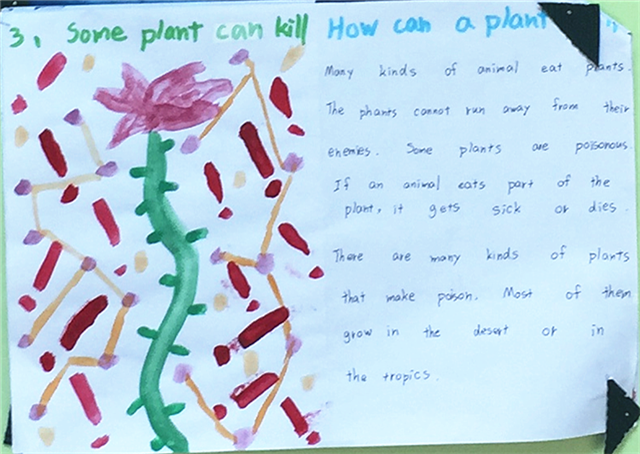 3, Some plant can kill
How can a plant
Many kinds of animal eat plants.
The phants cannot run away from their
enemies. Some plants are poisonous
If an animal eats part of the
plant, it gets sick or dies.
There are many kinds of plants
that make poison. Most of them
grow in the desert or in
the tropics.